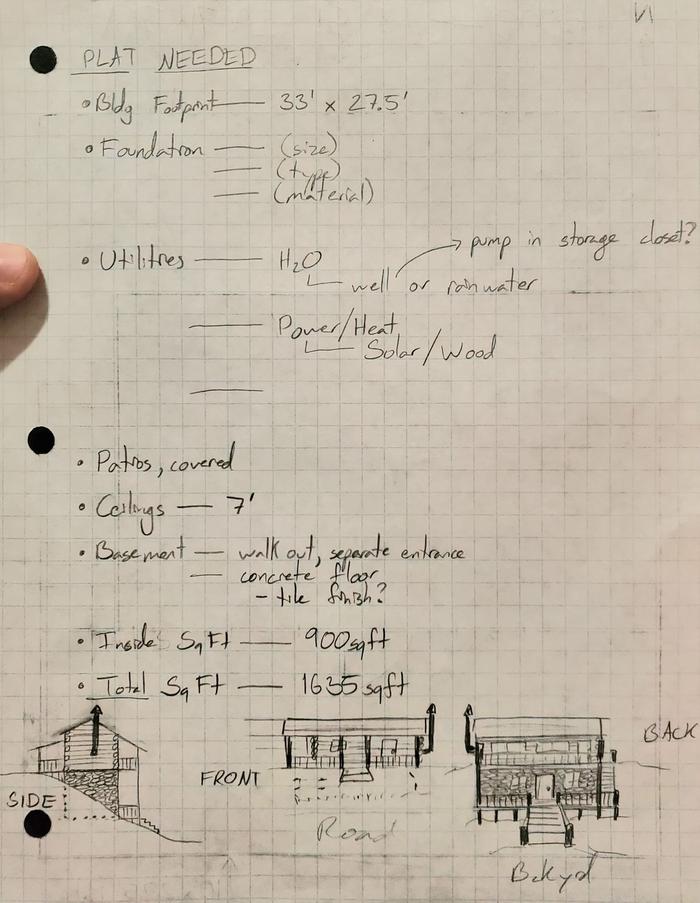 PLAT NEEDED
• Bldg Footprint — 33' x 27.5'
• Foundation — (size)
— (type)
— (material)
• Utilities — H₂O → pump in storage closet?
well or rainwater
— Power/Heat
Solar/Wood
—
• Patios, covered
• Ceilings — 7'
• Basement — walk out, separate entrance
— concrete floor
- tile finish?
• Inside SqFt — 900 sqft
• Total SqFt — 1635 sqft
BACK
FRONT
SIDE
Road
Bckyd